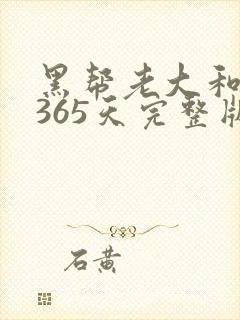 黑帮老大和
365天完整版
石黄